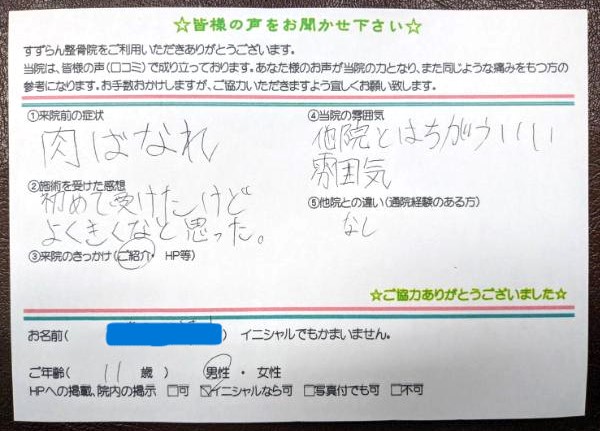 ☆皆様の声をお聞かせ下さい☆
すずらん整骨院をご利用いただきありがとうございます。
当院は、皆様の声（口コミ）で成り立っております。あなた様のお声が当院の力となり、また同じような痛みをもつ方の
参考になります。お手数おかけしますが、ご協力いただきますよう宜しくお願い致します。
①来院前の症状
肉ばなれ
②施術を受けた感想
初めて受けたけど
よくきくなと思った。
③来院のきっかけ（ご紹介・HP等）
④当院の雰囲気
他院とはちがういい
雰囲気
⑤他院との違い（通院経験のある方）
なし
☆ご協力ありがとうございました☆
お名前（ ）イニシャルでもかまいません。
ご年齢（ 11 歳 ） 男性 ・ 女性
HPへの掲載、院内の掲示 □可 ☑イニシャルなら可 □写真付でも可 □不可